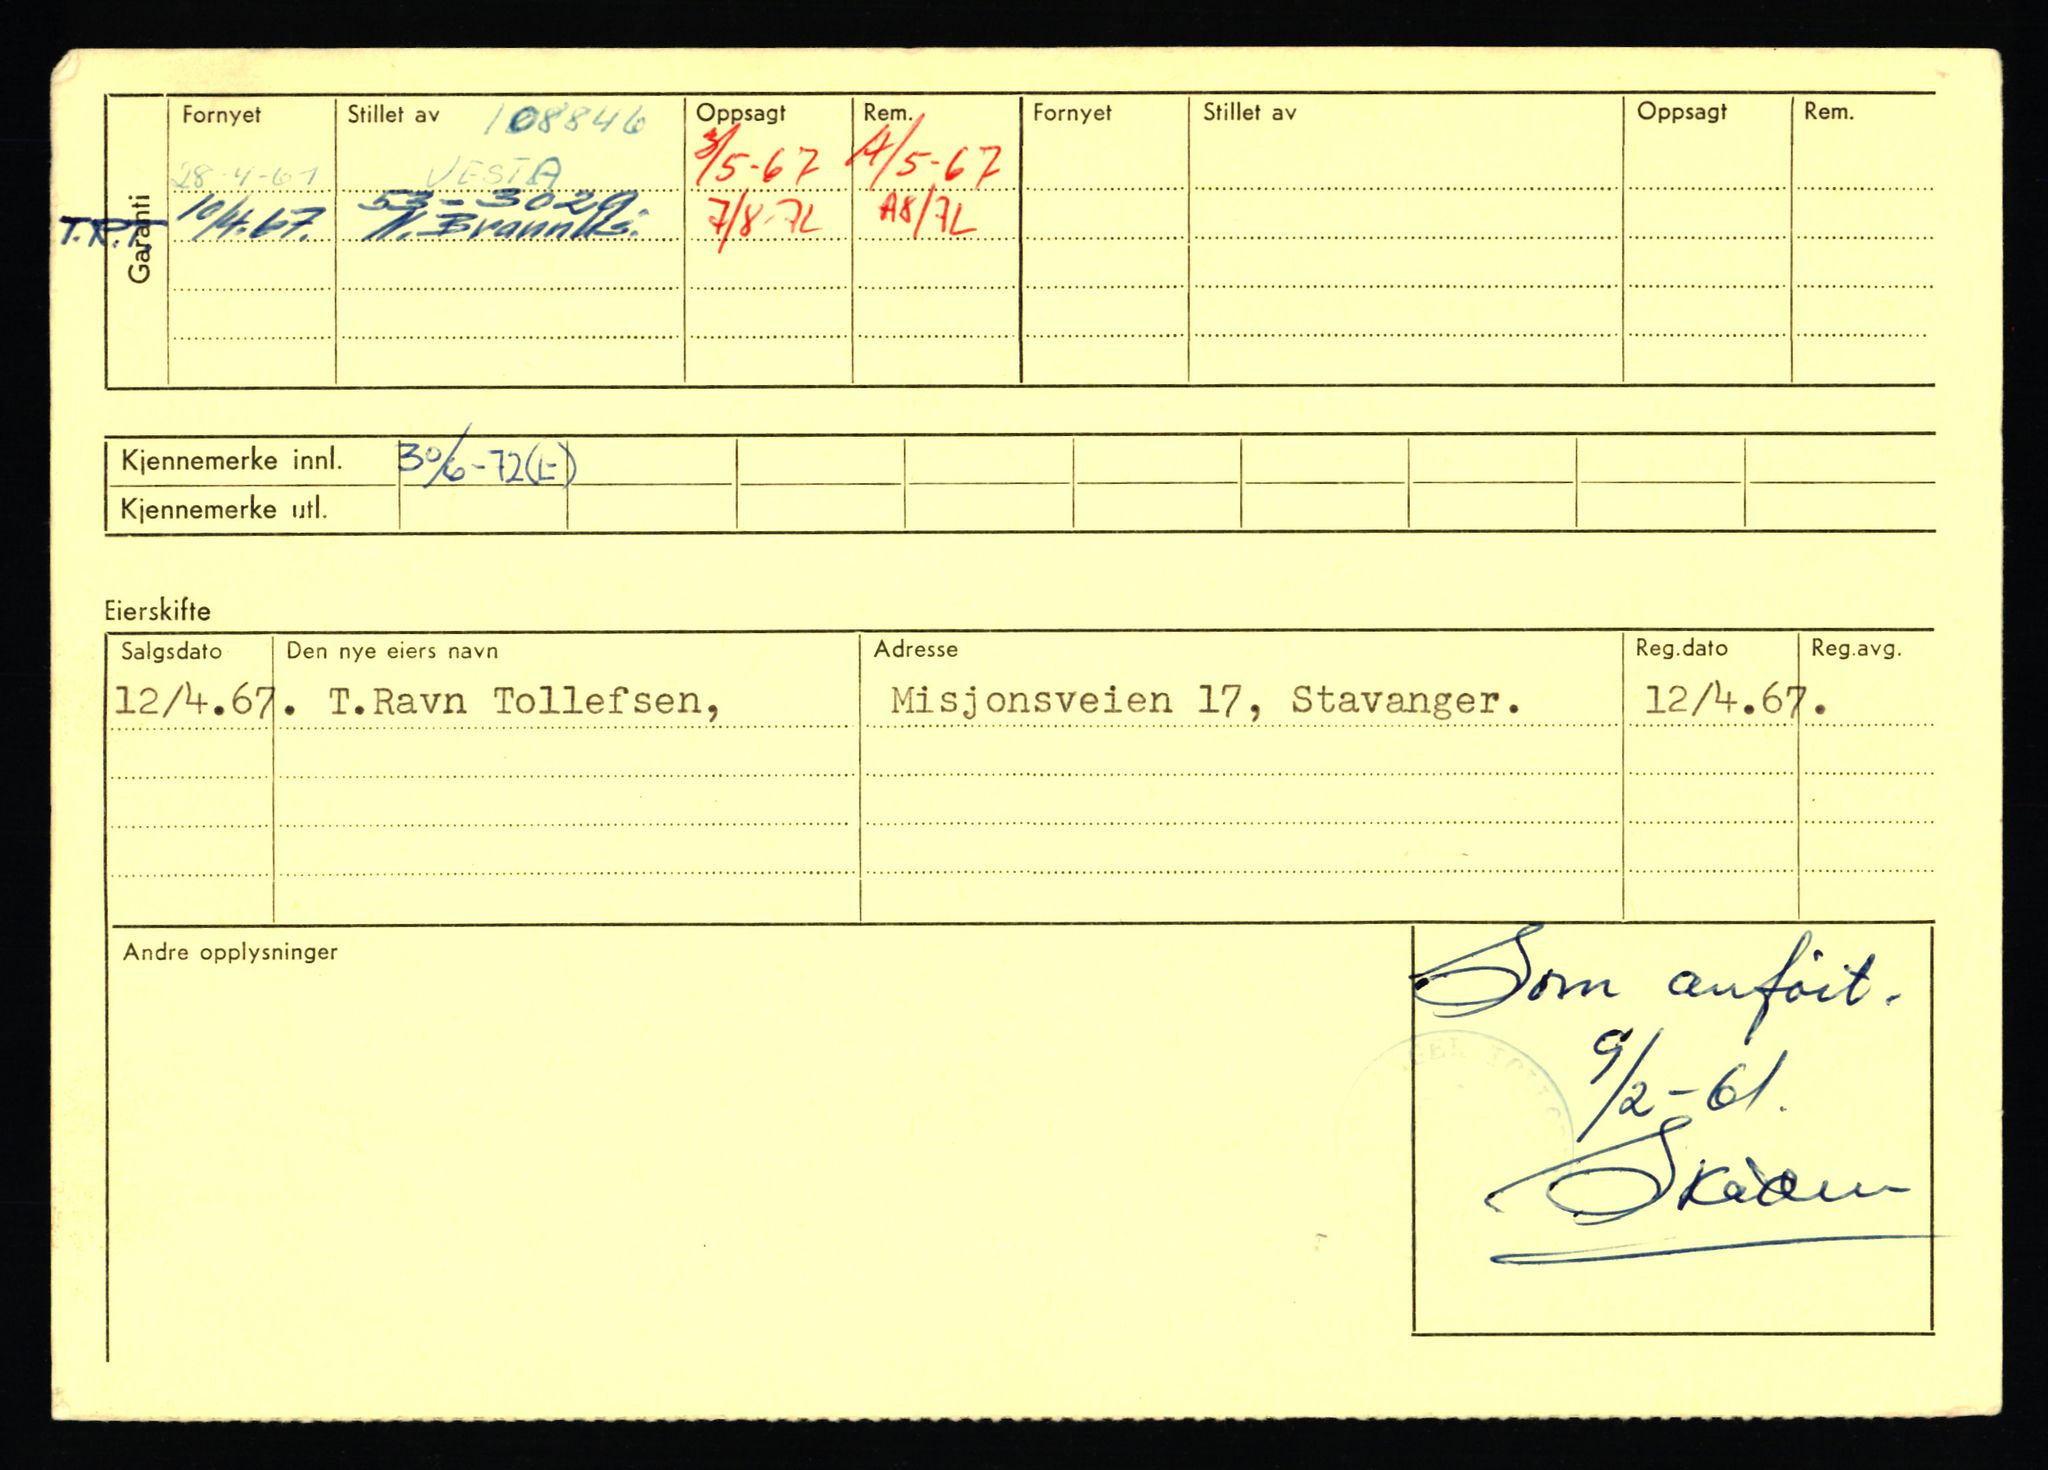 Garanti
Fornyet Stillet av 108846 Oppsagt Rem. Fornyet Stillet av Oppsagt Rem.
28-4-61 VESTA 3/5-67 A/5-67
53-3029
T.R.T. 10/4.67. N. Brannk.s. 7/8-72 A8/72
Kjennemerke innl. 30/6-72(E)
Kjennemerke utl.
Eierskifte
Salgsdato Den nye eiers navn Adresse Reg.dato Reg.avg.
12/4.67. T.Ravn Tollefsen, Misjonsveien 17, Stavanger. 12/4.67.
Andre opplysninger
Som anføit.
9/2-61.